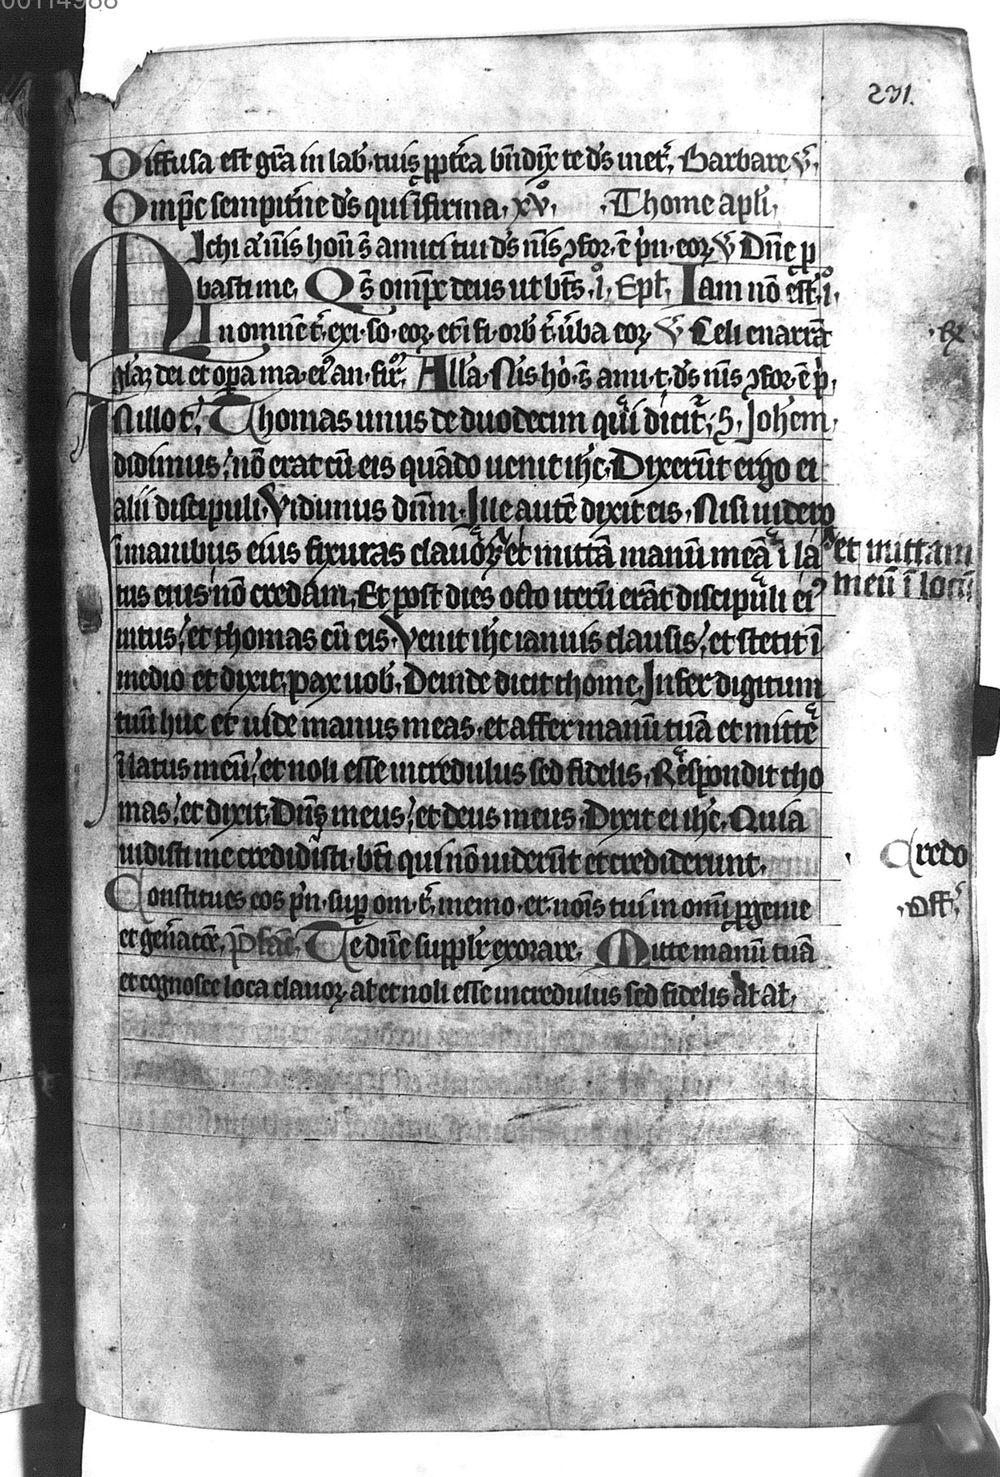 00114988
231.
Diffusa est gr̄a in lab̄. tuis ꝓpt̄ea bn̄dix̄ te ds̄ in et̄, Barbare v̄.
Omp̄c sempit̄ne ds̄ qui īfirma, xv°. Thome apl̄i,
Michi a. nīs hon̄ s̄ amici tui ds̄ nīs ↄfor. ē p̄n. eoꝝ v̄ Dn̄e ꝓ
basti me, Qs̄ omp̄c deus ut bt̄s. i°. Epl̄. Iam nō est. i°.
In omnē t̄. exi. so. eoꝝ. et ī fi. orb̄ t̄. v̄ba eoꝝ v̄ Celi enarrāt
gl̄aꝫ dei et op̄a ma. ei᷒ an. fir̄. All̄a. Nīs ho. s̄ ami. t. ds̄ nīs ↄfor. ē p̄.
In illo t̄. Thomas unus de duodecim qui dicit̄. S. Joh̄em.
didimus. nō erat cū eis quādo uenit ih̄c. Dixerūt ergo ei
alii discipuli. Vidimus dn̄m. Ille autē dixit eis. Nisi uidero
ī manibus eius fixuras clauoꝝ. et mittā manū meā ī la
et mittam
meū ī locū
tus eius nō credam. Et post dies octo iterū erāt discipuli ei᷒
intus. et thomas cū eis. Venit ih̄c ianuis clausis. et stetit ī
medio et dixit. pax uob̄. Deinde dicit thome. Infer digitum
tuū huc et uide manus meas. et affer manū tuā et mitte
ī latus meū. et noli esse incredulus sed fidelis. Respondit tho
mas. et dixit. Dn̄s meus. et deus meus. Dixit ei ih̄c. Quia
uidisti me credidisti. bt̄i qui nō uiderūt et crediderunt.
Credo
Constitues eos p̄n. sup̄ om. t̄. memo. er. nōis tui in omī ꝓgenie
.Off̄.
et gen̄atōe. Te dn̄e supplr̄ exorare. Mitte manū tuā
et cognosce loca clauoꝝ. al̄ et noli esse incredulus sed fidelis al̄ al̄.